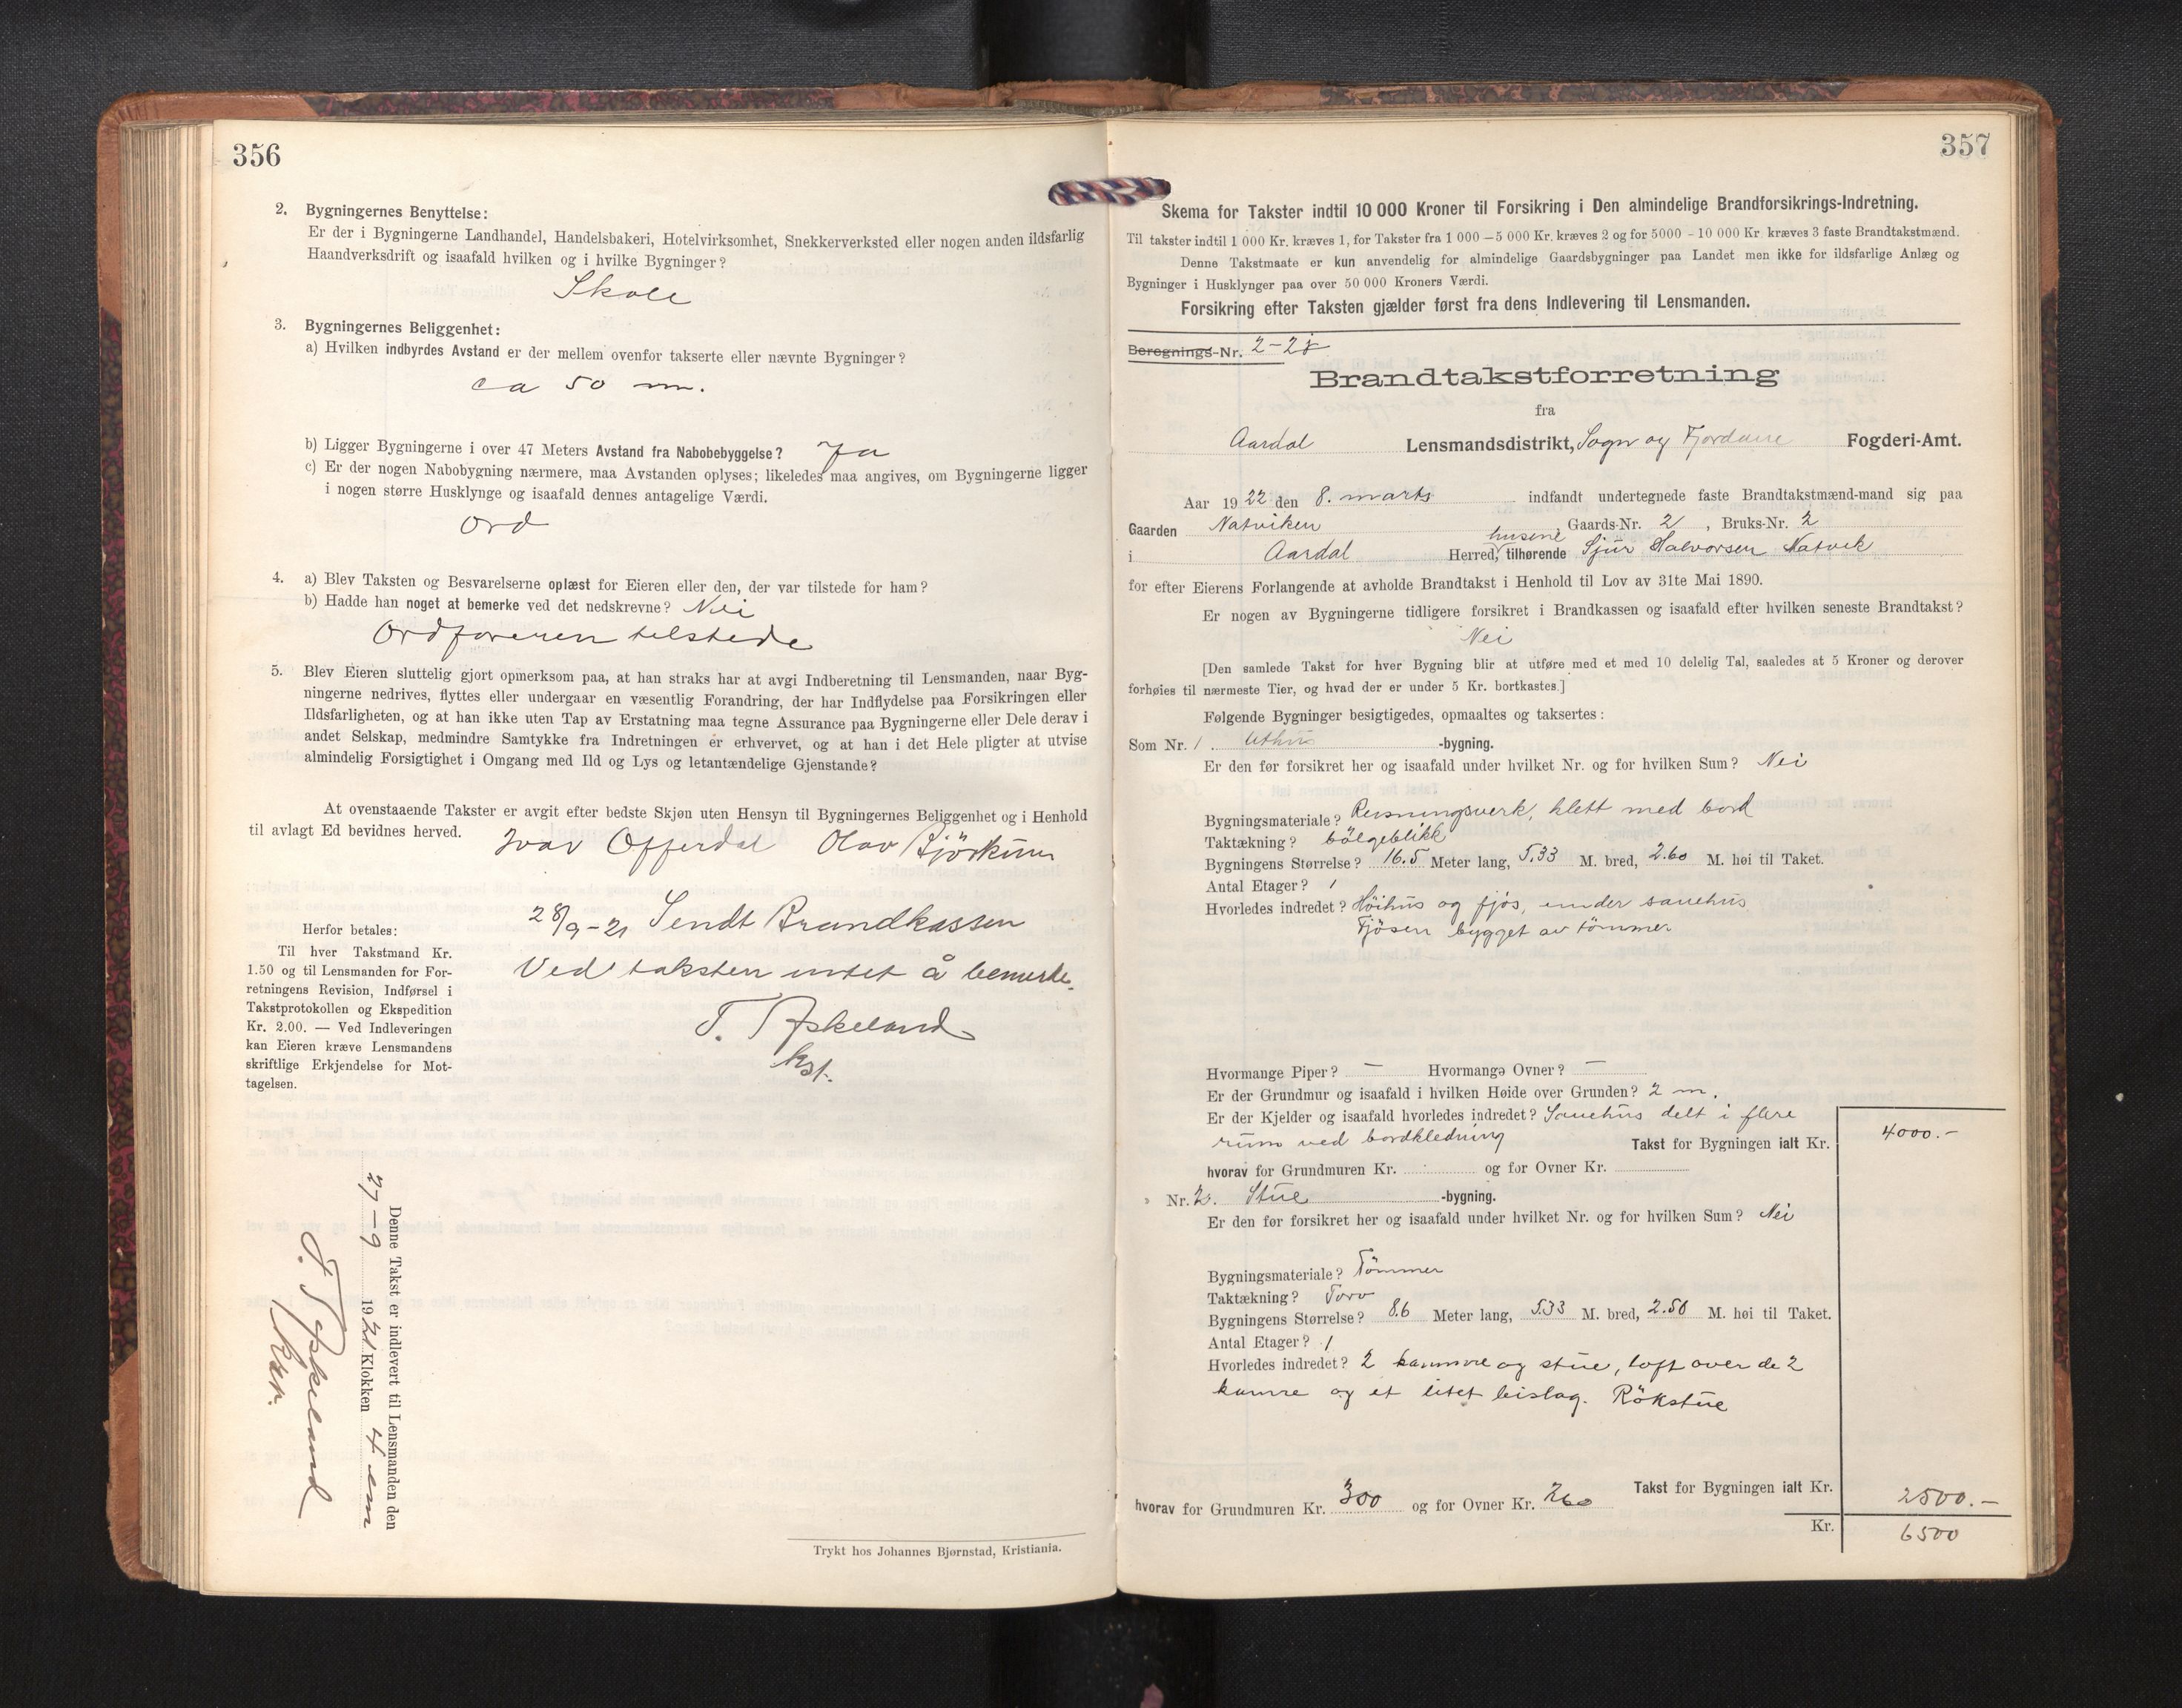 356
2. Bygningernes Benyttelse:
Er der i Bygningerne Landhandel, Handelsbakeri, Hotelvirksomhet, Snekkerverksted eller nogen anden ildsfarlig
Haandverksdrift og isaafald hvilken og i hvilke Bygninger?
Skole
3. Bygningernes Beliggenhet:
a) Hvilken indbyrdes Avstand er der mellem ovenfor takserte eller nævnte Bygninger?
ca 50 m.
b) Ligger Bygningerne i over 47 Meters Avstand fra Nabobebyggelse? Ja
c) Er der nogen Nabobygning nærmere, maa Avstanden oplyses; likeledes maa angives, om Bygningerne ligger
i nogen større Husklynge og isaafald dennes antagelige Værdi.
Ord
4. a) Blev Taksten og Besvarelserne oplæst for Eieren eller den, der var tilstede for ham?
b) Hadde han noget at bemerke ved det nedskrevne? Nei
Ordføreren tilstede
5. Blev Eieren sluttelig gjort opmerksom paa, at han straks har at avgi Indberetning til Lensmanden, naar Byg-
ningerne nedrives, flyttes eller undergaar en væsentlig Forandring, der har Indflydelse paa Forsikringen eller
Ildsfarligheten, og at han ikke uten Tap av Erstatning maa tegne Assurance paa Bygningerne eller Dele derav i
andet Selskap, medmindre Samtykke fra Indretningen er erhvervet, og at han i det Hele pligter at utvise
almindelig Forsigtighet i Omgang med Ild og Lys og letantændelige Gjenstande?
At ovenstaaende Takster er avgit efter bedste Skjøn uten Hensyn til Bygningernes Beliggenhet og i Henhold
til avlagt Ed bevidnes herved.
Ivar Offerdal Olav Bjørkum
28/9-21 Sendt Brandkassen
Ved taksten intet å bemerke.
T. Askeland
kst.
Herfor betales:
Til hver Takstmand Kr.
1.50 og til Lensmanden for For-
retningens Revision, Indførsel i
Takstprotokollen og Ekspedition
Kr. 2.00. — Ved Indleveringen
kan Eieren kræve Lensmandens
skriftlige Erkjendelse for Mot-
tagelsen.
Denne Takst er indlevert til Lensmanden den
27-9 1921 Klokken 4 em
T. Askeland
kst.
Trykt hos Johannes Bjørnstad, Kristiania.
357
Skema for Takster indtil 10 000 Kroner til Forsikring i Den almindelige Brandforsikrings-Indretning.
Til takster indtil 1 000 Kr. kræves 1, for Takster fra 1 000 — 5 000 Kr. kræves 2 og for 5000 - 10 000 Kr. kræves 3 faste Brandtakstmænd.
Denne Takstmaate er kun anvendelig for almindelige Gaardsbygninger paa Landet men ikke for ildsfarlige Anlæg og
Bygninger i Husklynger paa over 50 000 Kroners Værdi.
Forsikring efter Taksten gjælder først fra dens Indlevering til Lensmanden.
Beregnings-Nr. 2-2
Brandtakstforretning
fra
Aardal Lensmandsdistrikt, Sogn og Fjordane Fogderi-Amt.
Aar 1922 den 8. marts indfandt undertegnede faste Brandtakstmænd-mand sig paa
Gaarden Natviken Gaards-Nr. 2, Bruks-Nr. 2
i Aardal Herred, husene tilhørende Sjur Halvorsen Natvik
for efter Eierens Forlangende at avholde Brandtakst i Henhold til Lov av 31te Mai 1890.
Er nogen av Bygningerne tidligere forsikret i Brandkassen og isaafald efter hvilken seneste Brandtakst?
Nei
[Den samlede Takst for hver Bygning blir at utføre med et med 10 delelig Tal, saaledes at 5 Kroner og derover
forhøies til nærmeste Tier, og hvad der er under 5 Kr. bortkastes.]
Følgende Bygninger besigtigedes, opmaaltes og taksertes:
Som Nr. 1. Uthus -bygning.
Er den før forsikret her og isaafald under hvilket Nr. og for hvilken Sum? Nei
Bygningsmateriale? Reisningsverk, klett med bord
Taktækning? bölgeblikk
Bygningens Størrelse? 16.5 Meter lang, 5.33 M. bred, 2.60 M. høi til Taket.
Antal Etager? 1
Hvorledes indredet? Höihus og fjös, under sauehus
Fjösen bygget av tömmer
Hvormange Piper? — Hvormange Ovner? —
Er der Grundmur og isaafald i hvilken Høide over Grunden? 2 m.
Er der Kjelder og isaafald hvorledes indredet? Sauehus delt i flere
rum ved bordkledning Takst for Bygningen ialt Kr. 4000.-
hvorav for Grundmuren Kr. og for Ovner Kr.
Nr. 2. Stue -bygning.
Er den før forsikret her og isaafald under hvilket Nr. og for hvilken Sum? Nei
Bygningsmateriale? Tömmer
Taktækning? Torv
Bygningens Størrelse? 8.6 Meter lang, 5.33 M. bred, 2.50 M. høi til Taket.
Antal Etager? 1
Hvorledes indredet? 2 kammre og stue, loft over de 2
kamre og et litet bislag. Rökstue
Takst for Bygningen ialt Kr. 2500.-
hvorav for Grundmuren Kr. 300 og for Ovner Kr. 260
Kr. 6500